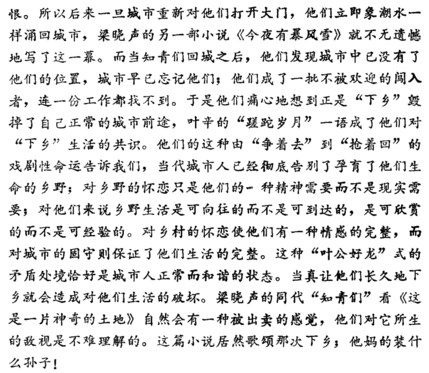 恨。所以后来一旦城市重新对他们打开大门，他们立即象潮水一
样涌回城市，梁晓声的另一部小说《今夜有暴风雪》就不无遗憾
地写了这一幕。而当知青们回城之后，他们发现城市中已没有了
他们的位置，城市早已忘记他们；他们成了一批不被欢迎的闯入
者，连一份工作都找不到。于是他们痛心地想到正是“下乡”毁
掉了自己正常的城市前途，叶辛的“蹉跎岁月”一语成了他们对
“下乡”生活的共识。他们的这种由“争着去”到“抢着回”的
戏剧性命运告诉我们，当代城市人已经彻底告别了孕育了他们生
命的乡野；对乡野的怀恋只是他们的一种精神需要而不是现实需
要；对他们来说乡野生活是可向往的而不是可到达的，是可欣赏
的而不是可经验的。对乡村的怀恋使他们有一种情感的完整，而
对城市的固守则保证了他们生活的完整。这种“叶公好龙”式的
矛盾处境恰好是城市人正常而和谐的状态。当真让他们长久地下
乡就会造成对他们生活的破坏。梁晓声的同代“知青们”看《这
是一片神奇的土地》自然会有一种被出卖的感觉，他们对它所生
的敌视是不难理解的。这篇小说居然歌颂那次下乡；他妈的装什
么孙子！